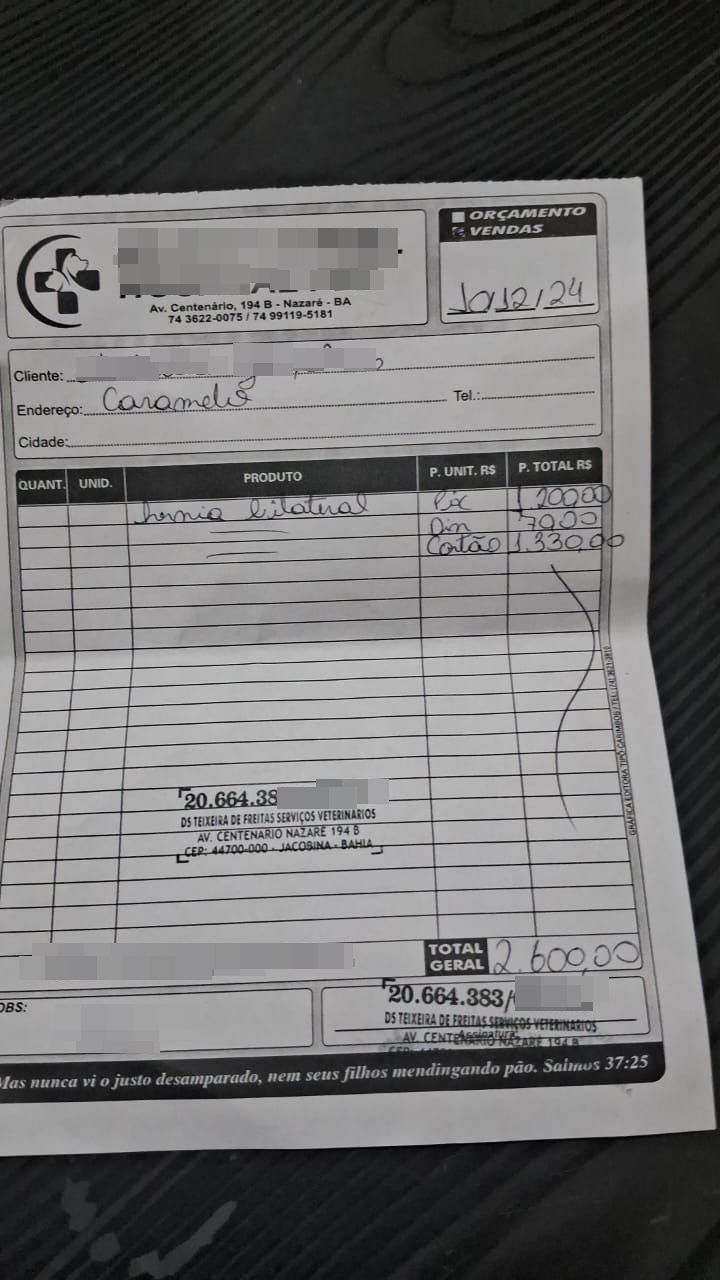 ORÇAMENTO
VENDAS
10/12/24
Av. Centenário, 194 B - Nazaré - BA
74 3622-0075 / 74 99119-5181
Cliente:
Endereço: Caramelo Tel.:
Cidade:
QUANT. UNID. PRODUTO P. UNIT. R$ P. TOTAL R$
hernia bilateral Pix 1.200,00
Din 70,00
Cartão 1.330,00
GRÁFICA EDITORA TIPÔ CARIMBOS / TEL.: (74) 3621-3810
20.664.38
DS TEIXEIRA DE FREITAS SERVIÇOS VETERINARIOS
AV. CENTENARIO NAZARÉ 194 B
CEP: 44700-000 - JACOBINA - BAHIA
TOTAL GERAL 2.600,00
OBS:
20.664.383/
DS TEIXEIRA DE FREITAS SERVIÇOS VETERINARIOS
Assinatura
AV. CENTENARIO NAZARÉ 194 B
Mas nunca vi o justo desamparado, nem seus filhos mendingando pão. Salmos 37:25